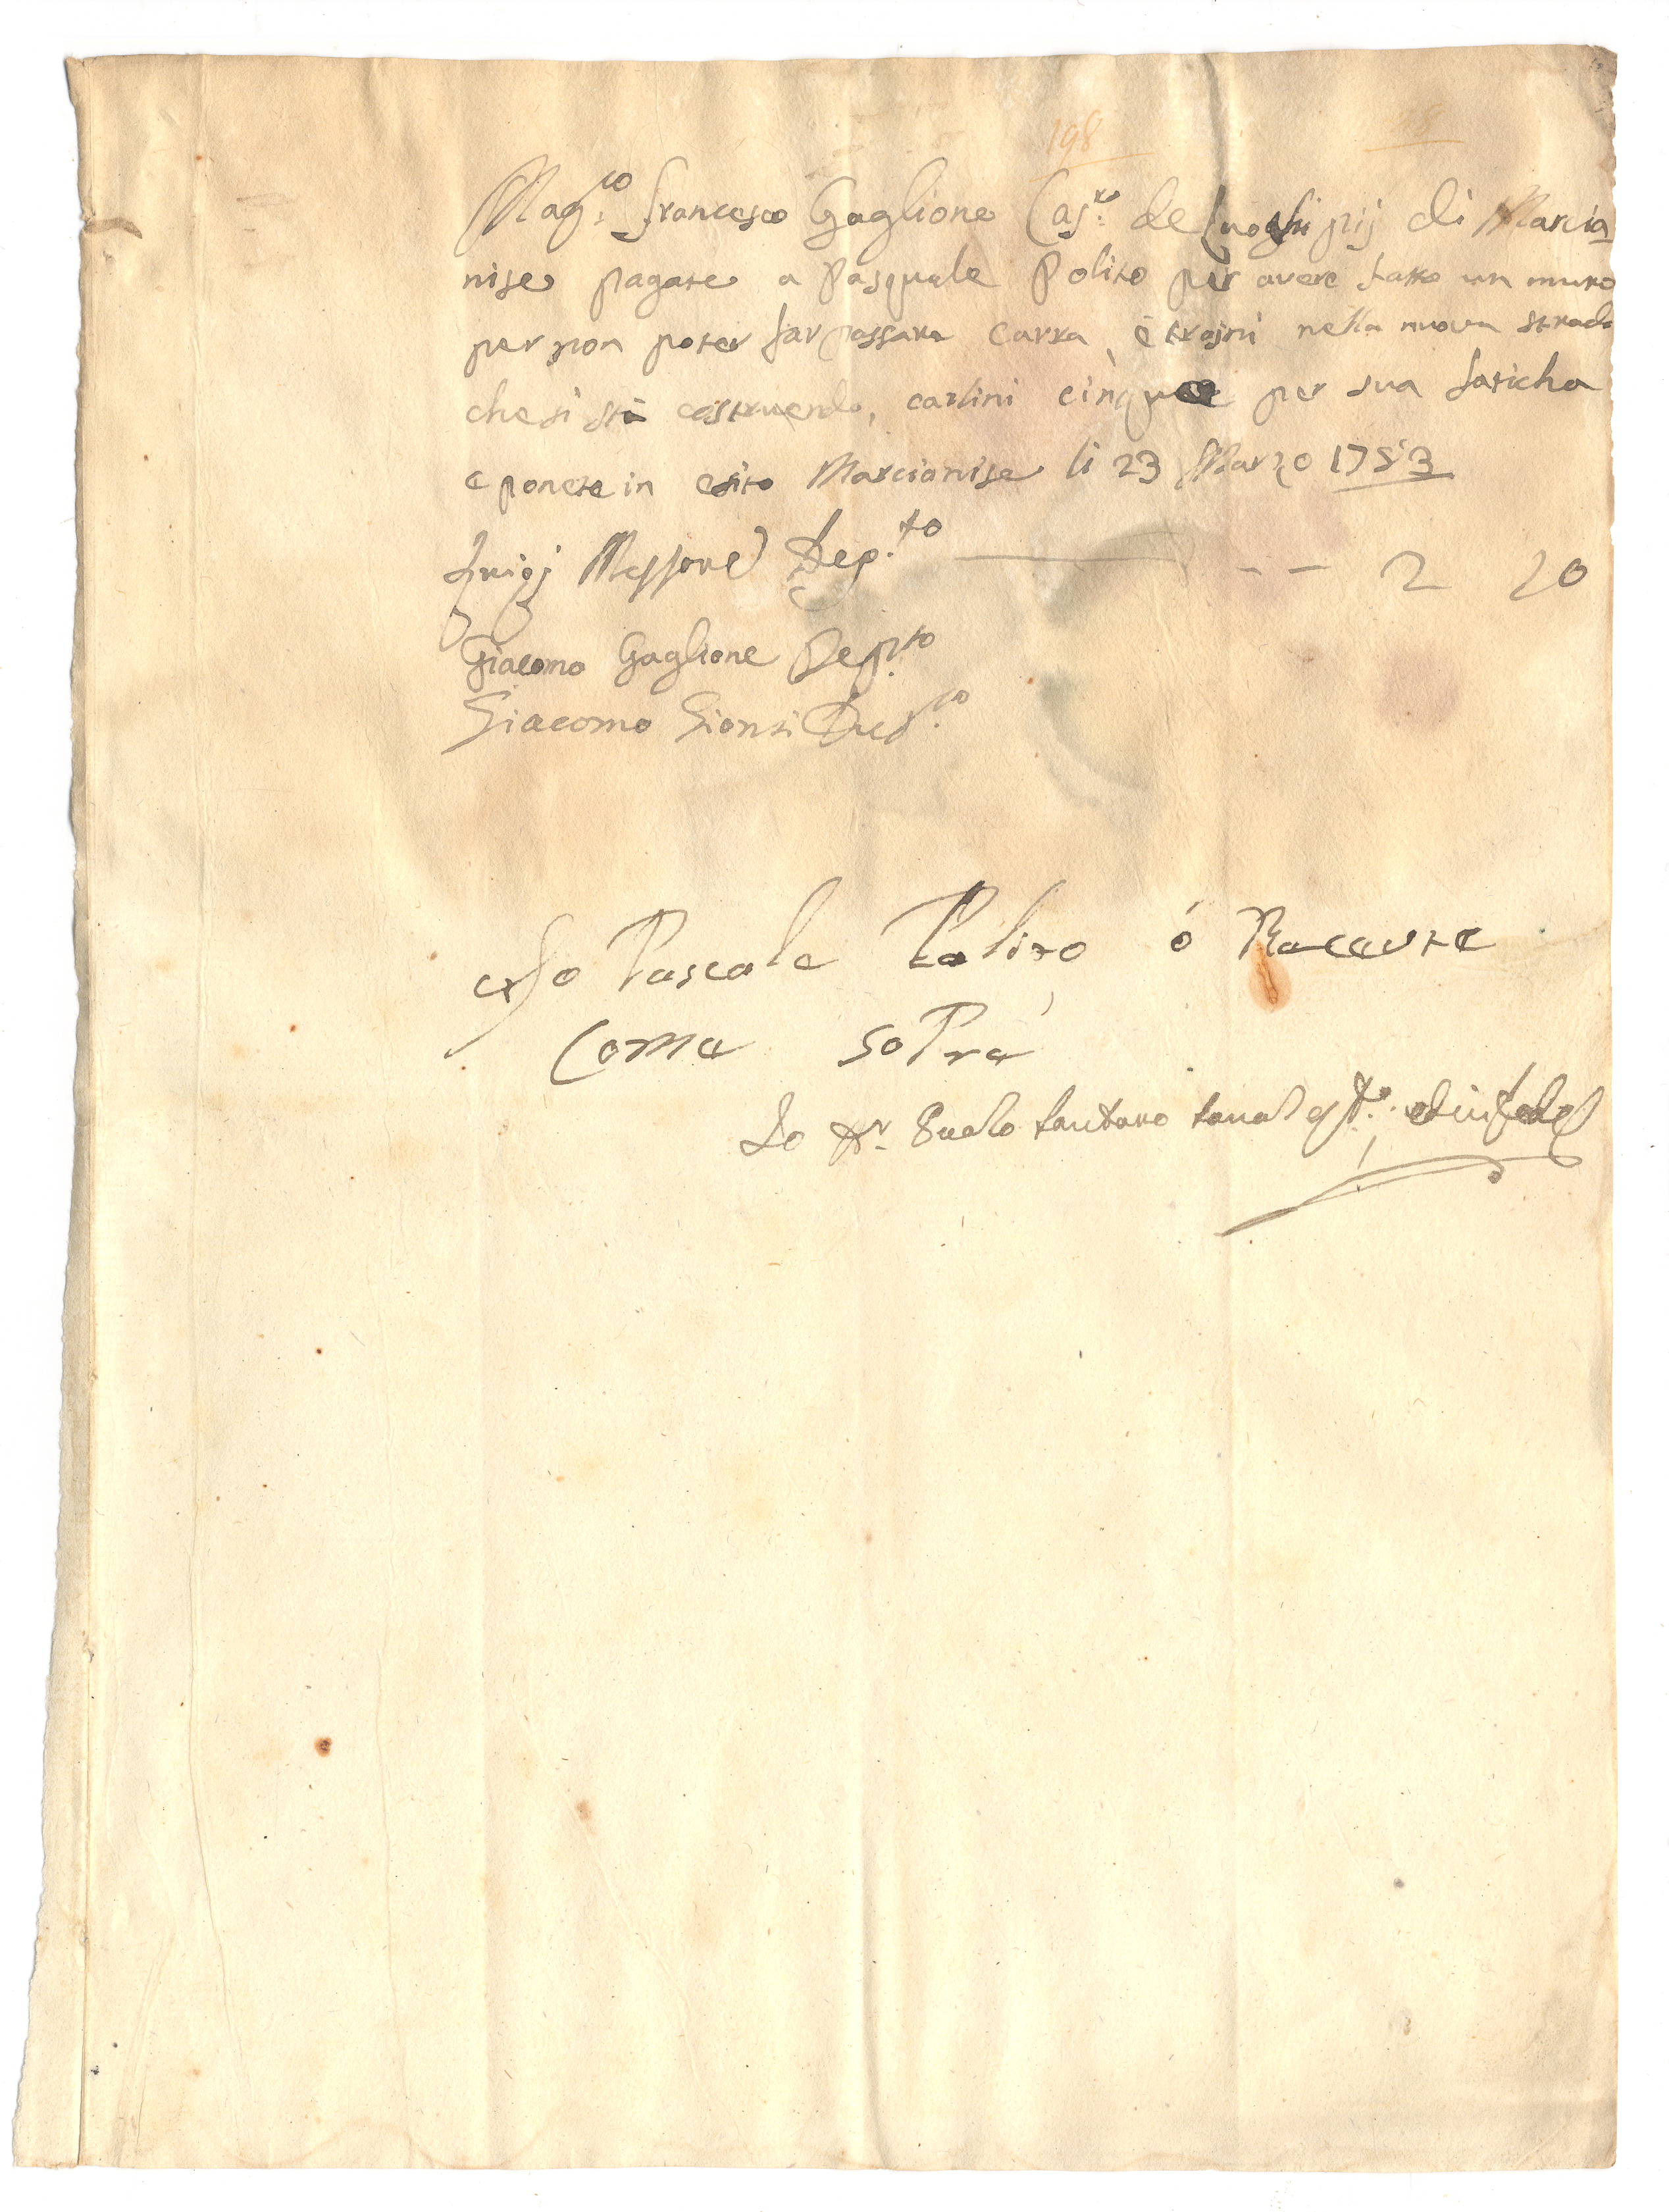 198
Mag.co Francesco Gaglione Cas.ro de Luoghi pij di Marcia
nise pagate a Pasquale Polito per avere fatto un muro
per non poter far passare carra, è trajni nella nuova strada
che si stà costruendo, carlini cinque per sua faticha
e ponete in esito Marcianise li 23 Marzo 1753
Luigi Messore Dep.to -- 2 20
Giacomo Gaglione Dep.to
Giacomo Dep.to
Io Pascale Polito ó Receute
Come soPra
Io Dr. Paolo